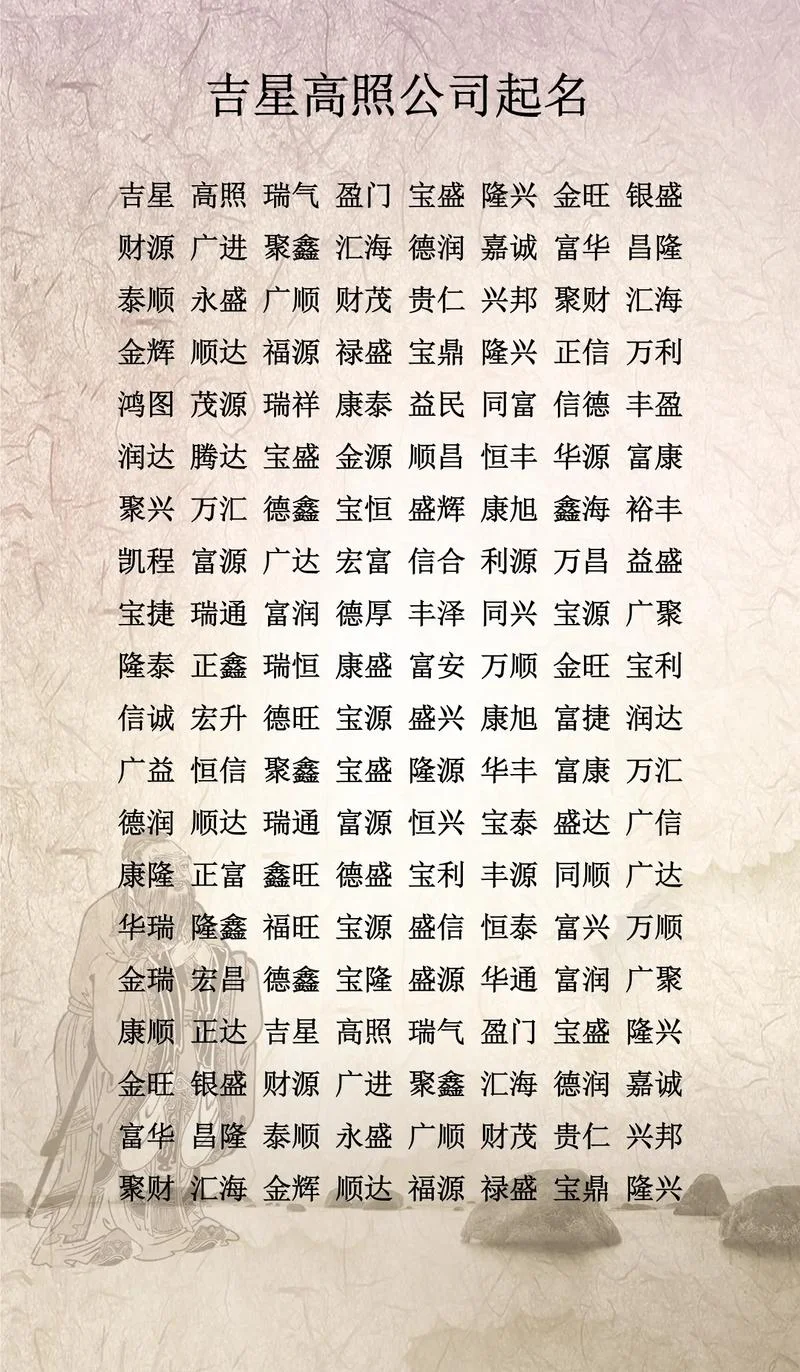 吉星高照公司起名
吉星 高照 瑞气 盈门 宝盛 隆兴 金旺 银盛
财源 广进 聚鑫 汇海 德润 嘉诚 富华 昌隆
泰顺 永盛 广顺 财茂 贵仁 兴邦 聚财 汇海
金辉 顺达 福源 禄盛 宝鼎 隆兴 正信 万利
鸿图 茂源 瑞祥 康泰 益民 同富 信德 丰盈
润达 腾达 宝盛 金源 顺昌 恒丰 华源 富康
聚兴 万汇 德鑫 宝恒 盛辉 康旭 鑫海 裕丰
凯程 富源 广达 宏富 信合 利源 万昌 益盛
宝捷 瑞通 富润 德厚 丰泽 同兴 宝源 广聚
隆泰 正鑫 瑞恒 康盛 富安 万顺 金旺 宝利
信诚 宏升 德旺 宝源 盛兴 康旭 富捷 润达
广益 恒信 聚鑫 宝盛 隆源 华丰 富康 万汇
德润 顺达 瑞通 富源 恒兴 宝泰 盛达 广信
康隆 正富 鑫旺 德盛 宝利 丰源 同顺 广达
华瑞 隆鑫 福旺 宝源 盛信 恒泰 富兴 万顺
金瑞 宏昌 德鑫 宝隆 盛源 华通 富润 广聚
康顺 正达 吉星 高照 瑞气 盈门 宝盛 隆兴
金旺 银盛 财源 广进 聚鑫 汇海 德润 嘉诚
富华 昌隆 泰顺 永盛 广顺 财茂 贵仁 兴邦
聚财 汇海 金辉 顺达 福源 禄盛 宝鼎 隆兴